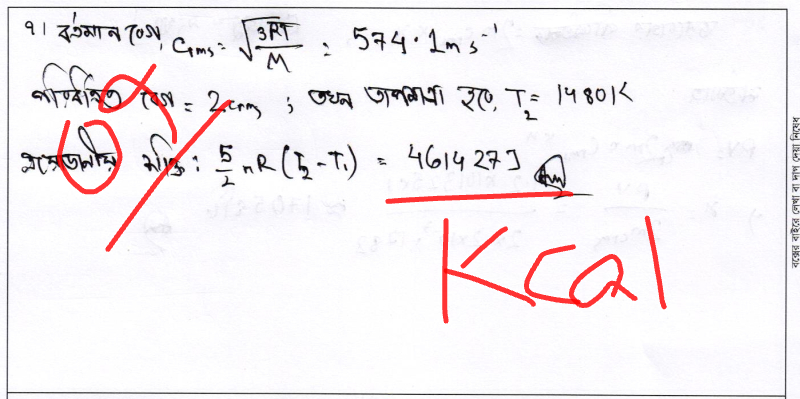 ৭। বর্তমান বেগ, Crms = √(3RT/M) = 574.1 m s⁻¹
পরিবর্তিত বেগ = 2Crms ; তখন তাপমাত্রা হবে, T₂ = 1480 K
প্রয়োজনীয় শক্তি : 5/2 nR (T₂ - T₁) = 461427 J Ans
0
Kcal
বক্সের বাইরে লেখা বা দাগ দেয়া নিষেধ